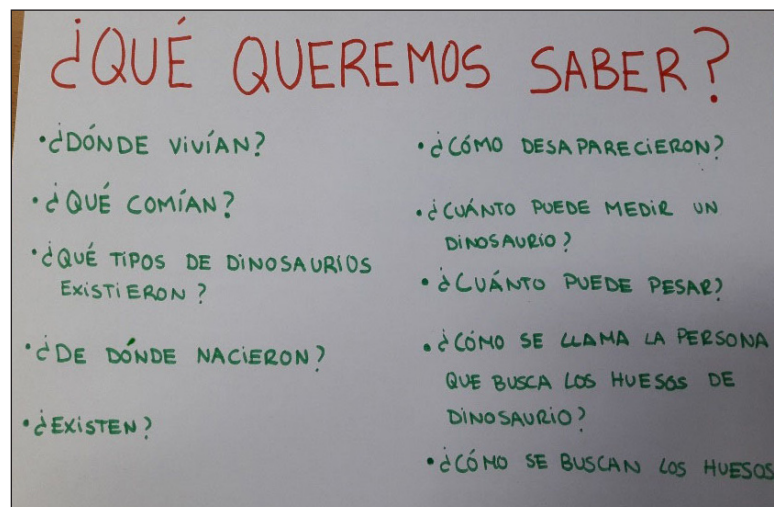 ¿QUÉ QUEREMOS SABER?
•¿DÓNDE VIVÍAN?
•¿QUÉ COMÍAN?
•¿QUÉ TIPOS DE DINOSAURIOS
EXISTIERON?
•¿DE DÓNDE NACIERON?
•¿EXISTEN?
•¿CÓMO DESAPARECIERON?
•¿CUÁNTO PUEDE MEDIR UN
DINOSAURIO?
•¿CUÁNTO PUEDE PESAR?
•¿CÓMO SE LLAMA LA PERSONA
QUE BUSCA LOS HUESOS DE
DINOSAURIO?
•¿CÓMO SE BUSCAN LOS HUESOS